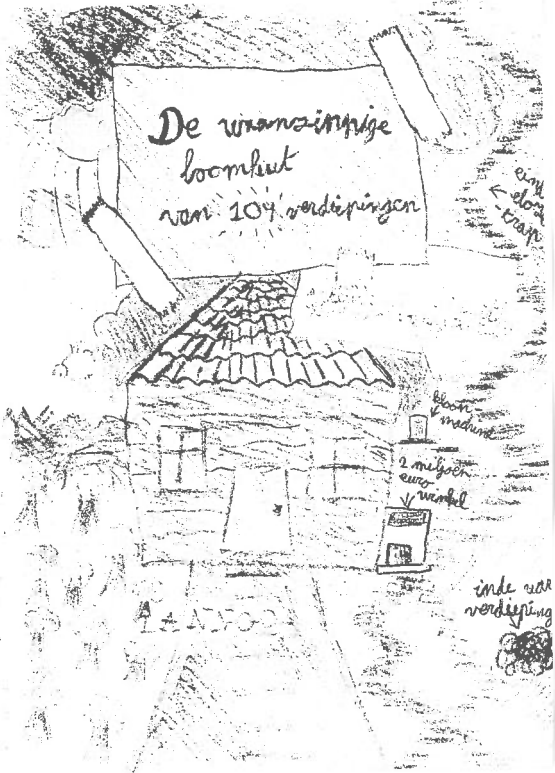 De waanzinnige
boomhut
van 104 verdiepingen
eind
eloze
trap
kloon
machine
2 miljoen
euro
winkel
inde war
verdieping